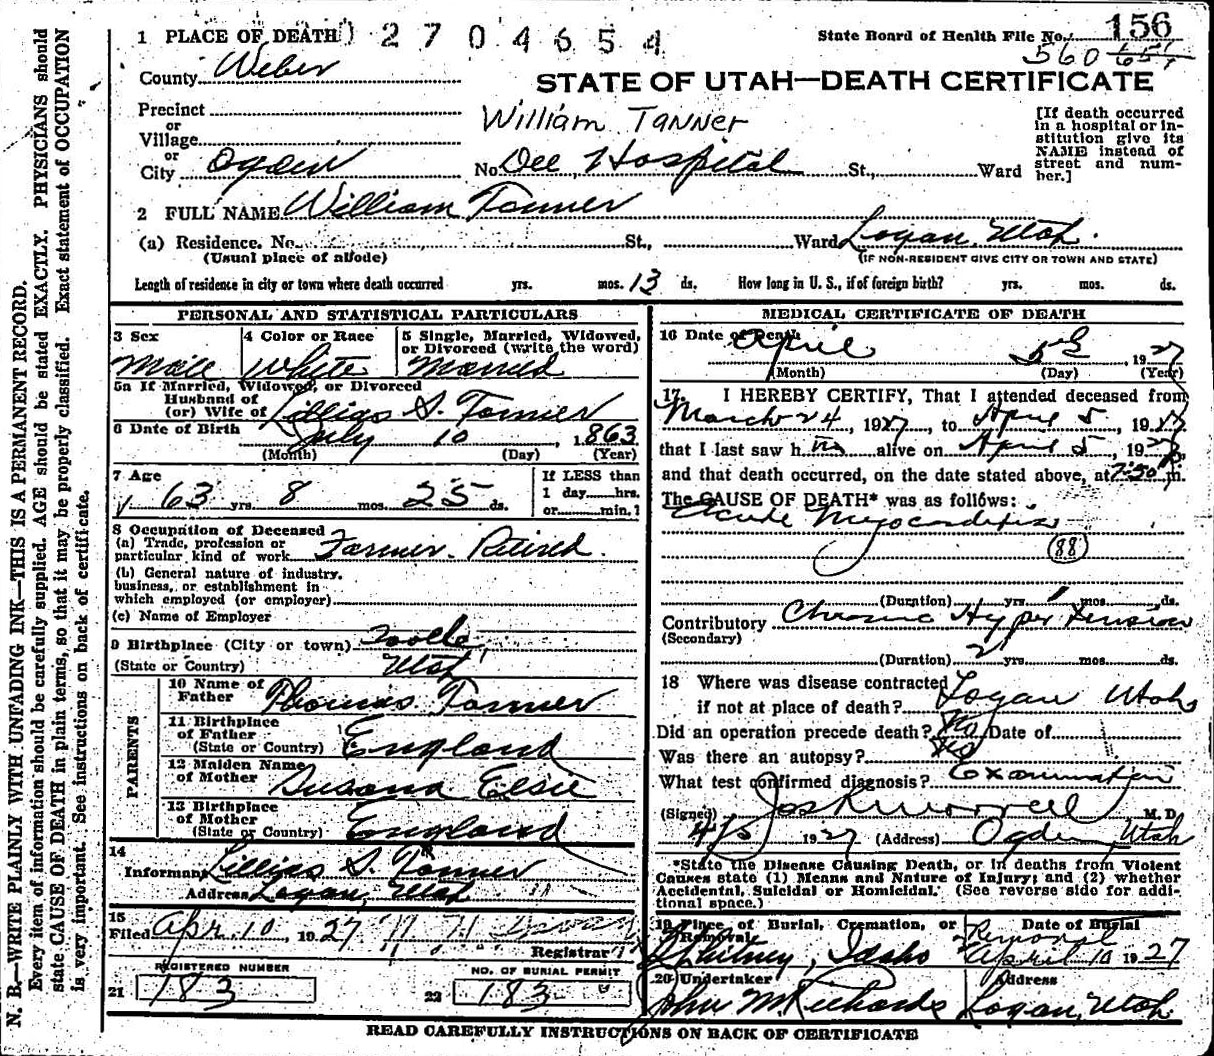 1 PLACE OF DEATH
2704654
State Board of Health File No. 156
560 651
County Weber
STATE OF UTAH—DEATH CERTIFICATE
Precinct
or
Village
or
City Ogden
William Tanner
No. Dee Hospital St., Ward
[If death occurred
in a hospital or in-
stitution give its
NAME instead of
street and num-
ber.]
2 FULL NAME William Tanner
(a) Residence. No. St., Ward Logan, Utah.
(Usual place of abode)
(IF NON-RESIDENT GIVE CITY OR TOWN AND STATE)
Length of residence in city or town where death occurred yrs. mos. 13 ds. How long in U. S., if of foreign birth? yrs. mos. ds.
PERSONAL AND STATISTICAL PARTICULARS
3 Sex
Male
4 Color or Race
White
5 Single, Married, Widowed,
or Divorced (write the word)
Married
5a If Married, Widowed, or Divorced
Husband of
(or) Wife of Lillias S. Tanner
6 Date of Birth July 10, 1863
(Month) (Day) (Year)
7 Age
63 yrs. 8 mos. 25 ds.
If LESS than
1 day hrs.
or min.?
8 Occupation of Deceased
(a) Trade, profession or
particular kind of work Farmer - Retired.
(b) General nature of industry,
business, or establishment in
which employed (or employer)
(c) Name of Employer
9 Birthplace (City or town) Tooele
(State or Country) Utah
PARENTS
10 Name of
Father Thomas Tanner
11 Birthplace
of Father
(State or Country) England
12 Maiden Name
of Mother Susana Elsie
13 Birthplace
of Mother
(State or Country) England
14
Informant Lillias S. Tanner
Address Logan, Utah
15
Filed Apr. 10, 1927
Registrar
REGISTERED NUMBER
21 183
NO. OF BURIAL PERMIT
22 183
MEDICAL CERTIFICATE OF DEATH
16 Date of Death
April 5 1927
(Month) (Day) (Year)
17. I HEREBY CERTIFY, That I attended deceased from
March 24, 1927, to April 5, 1927
that I last saw him alive on April 5, 1927,
and that death occurred, on the date stated above, at 7:50 m.
The CAUSE OF DEATH* was as follows:
Acute Myocarditis
88
(Duration) yrs. mos. ds.
Contributory Chronic Hypertension
(Secondary)
(Duration) 2 yrs. mos. ds.
18 Where was disease contracted
if not at place of death? Logan Utah
Did an operation precede death? No Date of
Was there an autopsy? No
What test confirmed diagnosis? Examination
(Signed) M. D.
4/5 1927 (Address) Ogden, Utah
*State the Disease Causing Death, or in deaths from Violent
Causes state (1) Means and Nature of Injury; and (2) whether
Accidental, Suicidal or Homicidal. (See reverse side for addi-
tional space.)
19 Place of Burial, Cremation, or
Removal
Whitney, Idaho
Date of Burial
Removal
April 10 1927
20 Undertaker
John M. Richards
Address
Logan, Utah
READ CAREFULLY INSTRUCTIONS ON BACK OF CERTIFICATE
N. B.—WRITE PLAINLY WITH UNFADING INK—THIS IS A PERMANENT RECORD.
Every item of information should be carefully supplied. AGE should be stated EXACTLY. PHYSICIANS should
state CAUSE OF DEATH in plain terms, so that it may be properly classified. Exact statement of OCCUPATION
is very important. See instructions on back of certificate.